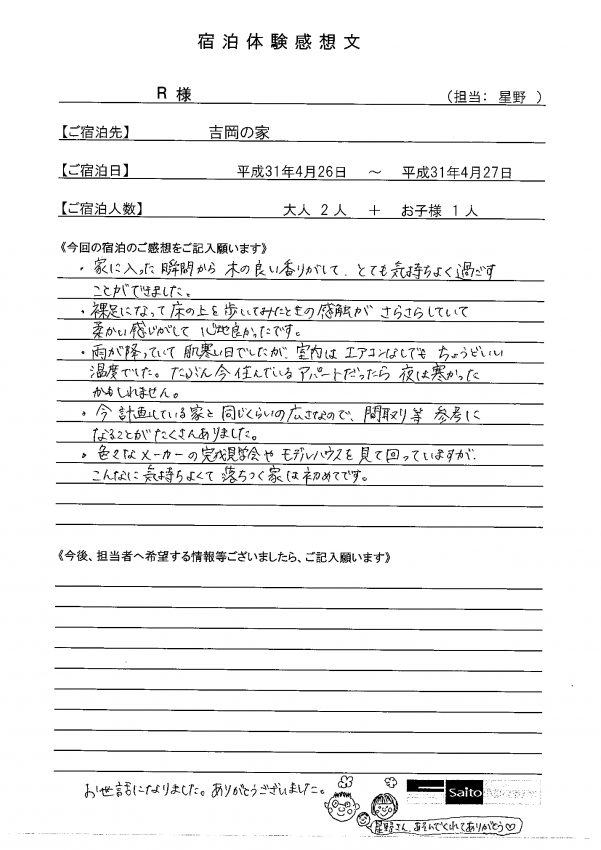 宿泊体験感想文
R 様 (担当： 星野 )
【ご宿泊先】 吉岡の家
【ご宿泊日】 平成31年4月26日 ～ 平成31年4月27日
【ご宿泊人数】 大人 2人 ＋ お子様 1人
《今回の宿泊のご感想をご記入願います》
・家に入った瞬間から 木の良い香りがして、とても気持ちよく過ごす
ことができました。
・裸足になって床の上を歩いてみたときの感触が さらさらしていて
柔かい感じがして 心地良かったです。
・雨が降っていて 肌寒い日でしたが、室内は エアコンなしでも ちょうどいい
温度でした。たぶん今住んでいるアパートだったら 夜は寒かった
かもしれません。
・今 計画している家と 同じくらいの広さなので、間取り等 参考に
なることがたくさんありました。
・色々なメーカーの完成見学会や モデルハウスを見て回っていますが、
こんなに気持ちよくて 落ちつく家は初めてです。
《今後、担当者へ希望する情報等ございましたら、ご記入願います》
お世話になりました。ありがとうございました。
Saito
星野さん、あそんでくれてありがとう♡